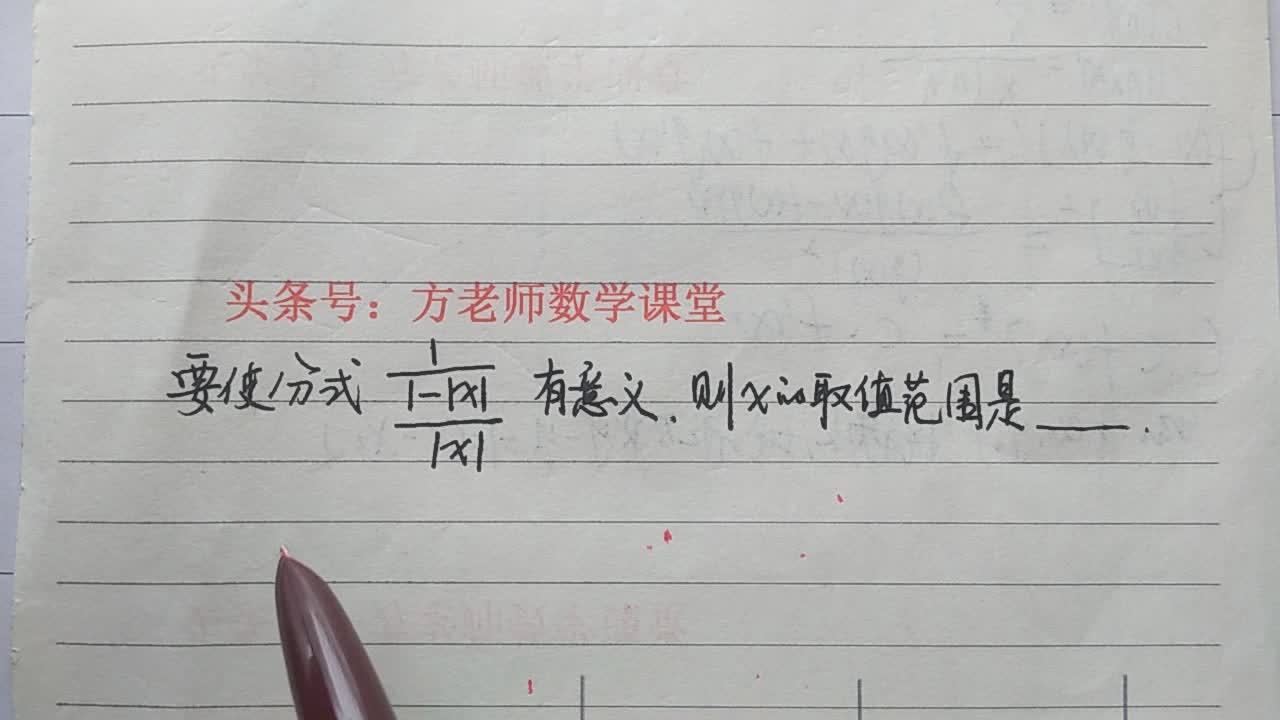 头条号：方老师数学课堂
要使分式 \frac{\frac{1}{1-|x|}}{|x|} 有意义，则x的取值范围是____.